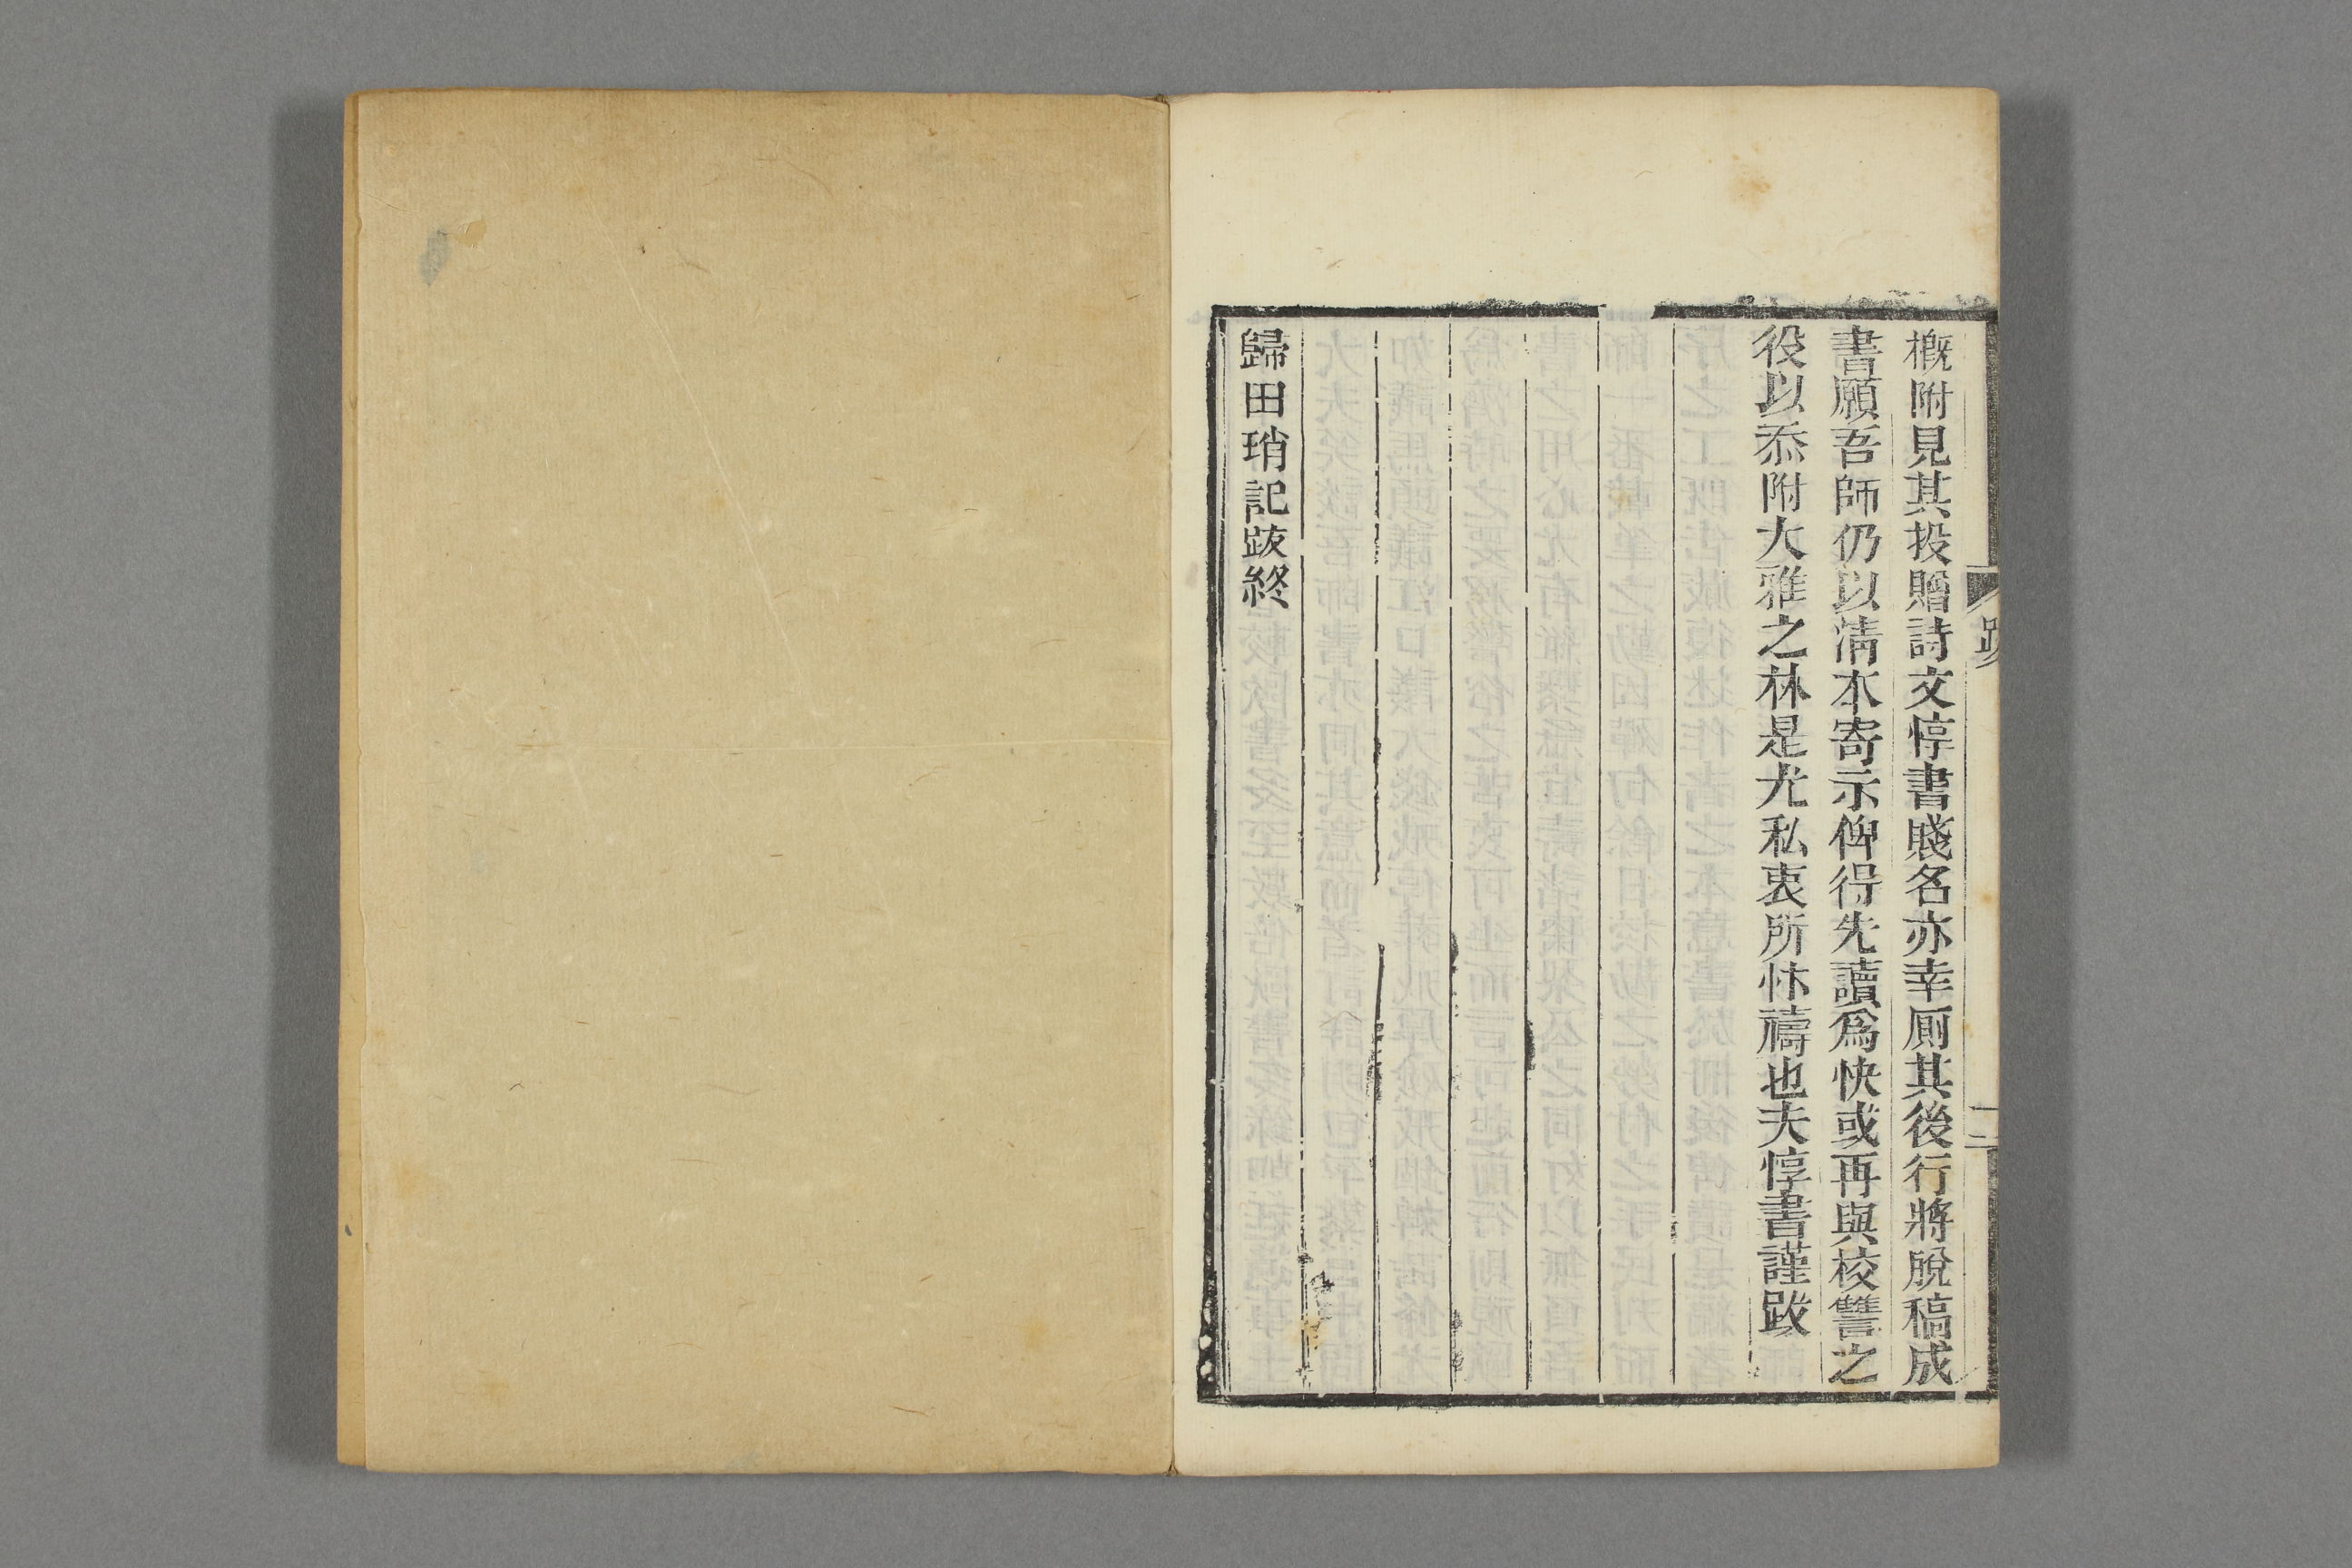 跋
二
槪附見其投贈詩文惇書賤名亦幸厠其後行將脫稿成
書願吾師仍以淸本寄示俾得先讀爲快或再與校讐之
役以忝附大雅之林是尤私衷所怵禱也夫惇書謹跋
歸田瑣記跋終